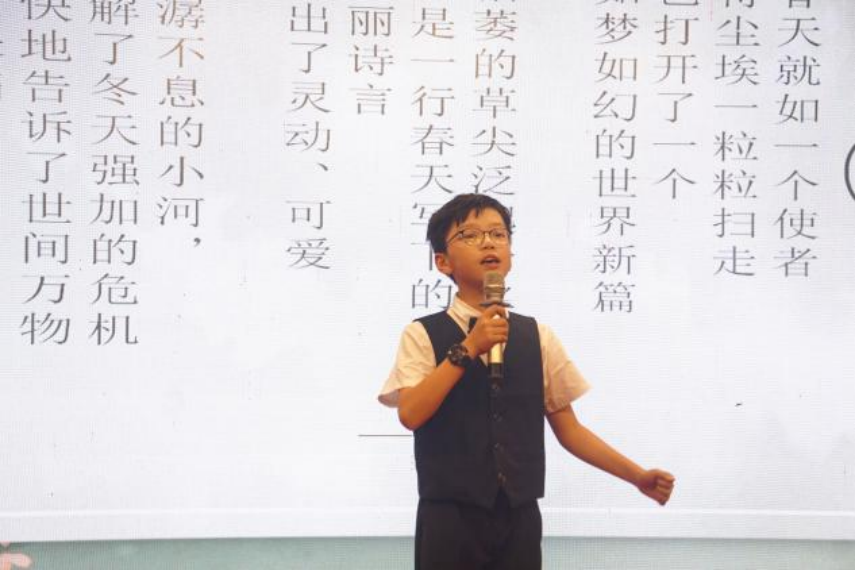 春天就如一个使者
尘埃一粒粒扫走
打开了一个
如梦如幻的世界新篇
萎的草尖泛
是一行春天写下的
丽诗言
出了灵动、可爱
潺不息的小河，
解了冬天强加的危机
快地告诉了世间万物